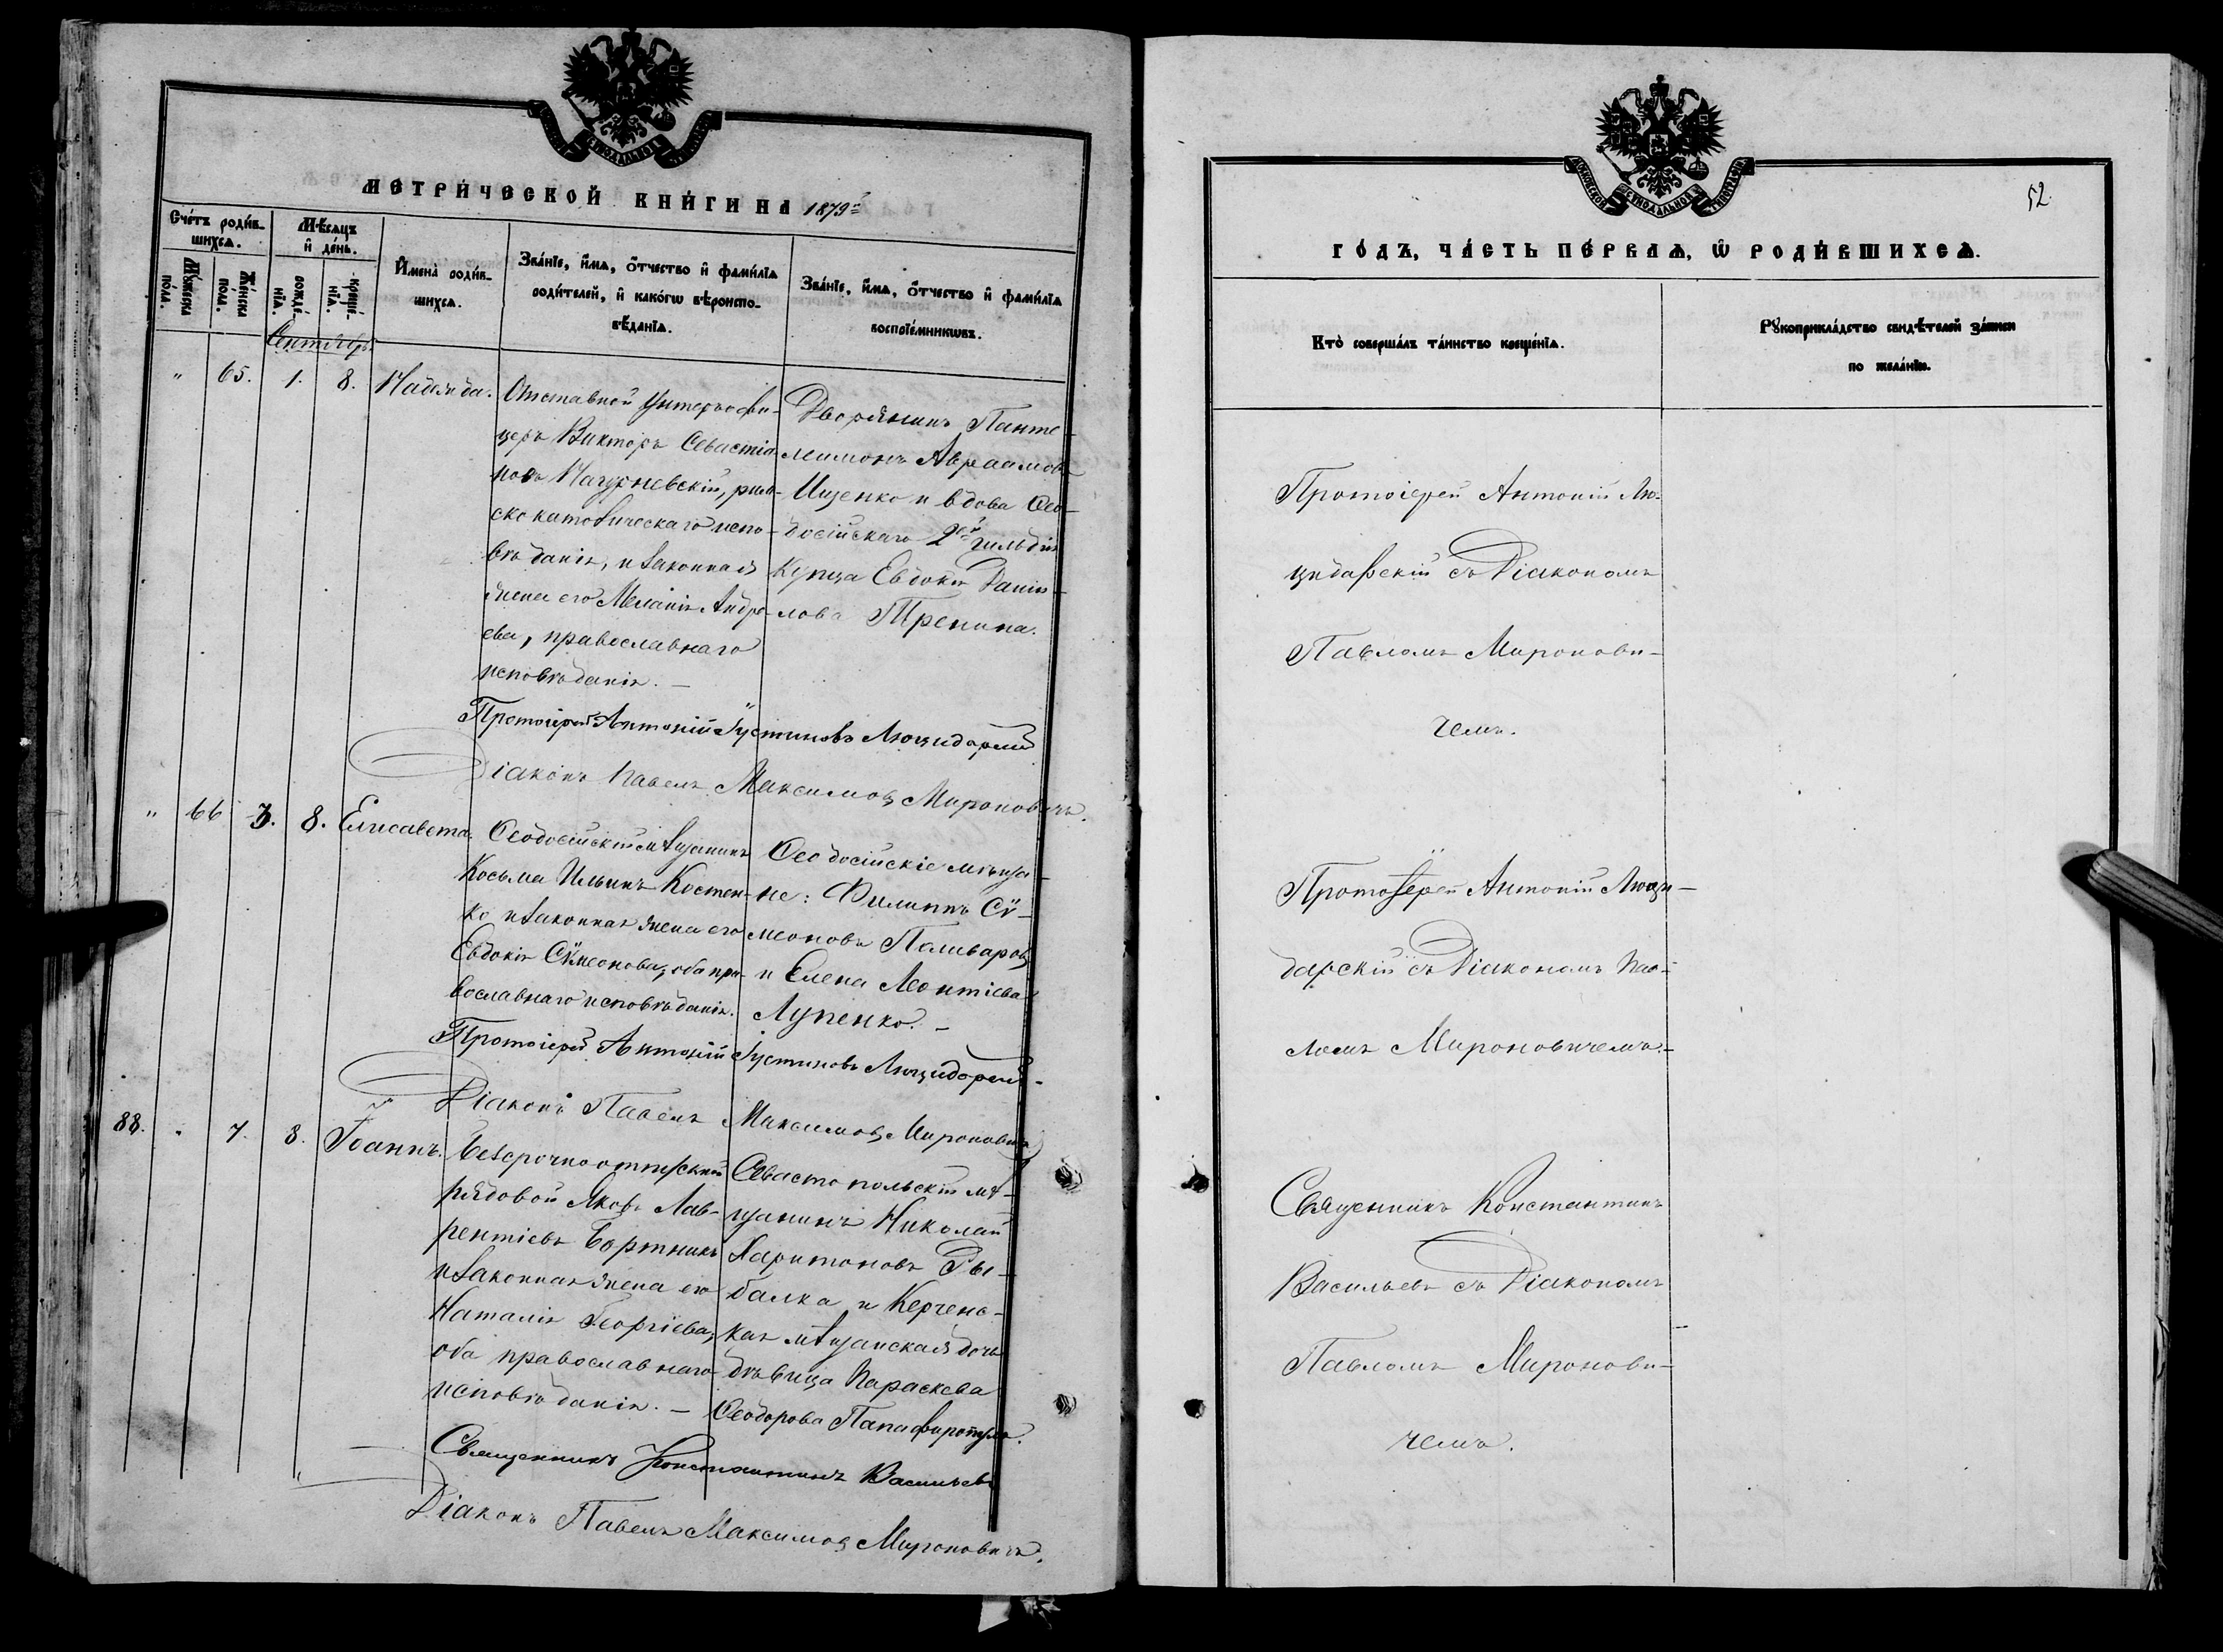 МЕТРИ́ЧЕСКОЙ КНИ́ГИ НА 1879й
Сче́тъ роди́в-
шихсѧ.
Мѣ́сѧцъ
и҆ де́нь.
Му́жеска по́ла.
Же́нска по́ла.
рожде́нїѧ.
креще́нїѧ.
И҆мена̀ роди́в-
шихсѧ.
Зва́нїе, и҆́мѧ, ѻ҆́тчество и҆ фами́лїѧ
роди́телей, и҆ како́гѡ вѣроиспо-
вѣ́данїѧ.
Зва́нїе, и҆́мѧ, ѻ҆́тчество и҆ фами́лїѧ
воспрїе́мникѡвъ.
Сентябрь
" 65. 1. 8. Надежда.
Отставной унтеръ-офи-
церъ Викторъ Севастіа-
новъ Мачурневскій, рим-
ско католическаго испо-
вѣданія, и законная
жена его Меланія Андре-
ева, православнаго
исповѣданія. –
Дворянинъ Панте-
леимонъ Авраамовъ
Ищенко и вдова Ѳео-
досійскаго 2й гильдіи
купца Евдокія Даніи-
лова Тренина.
Протоіерей Антоній Іустиновъ Люцидарскій
Діаконъ Павелъ Максимовъ Мироновичъ.
" 66 3. 8. Елисавета.
Ѳеодосійскій мѣщанинъ
Косьма Ильинъ Костен-
ко и законная жена его
Евдокія Сѵмеонова, оба пра-
вославнаго исповѣданія.
Ѳеодосійскіе мѣща-
не: Филиппъ Сѵ-
меоновъ Паливаровъ
и Елена Леонтіева
Лупенко. –
Протоіерей Антоній Іустиновъ Люцидарскій
Діаконъ Павелъ Максимовъ Мироновичъ
88. " 7. 8. Іоаннъ.
Безсрочноотпускной
рядовой Яковъ Лав-
рентіевъ Бортникъ
и законная жена его
Наталія Георгіева,
оба православнаго
исповѣданія. –
Севастопольскій мѣ-
щанинъ Николай
Харитоновъ Ры-
балка и Керченс-
кая мѣщанская дочь
дѣвица Параскева
Ѳеодорова
Священникъ Константинъ Васильевъ
Діаконъ Павелъ Максимовъ Мироновичъ.
МОСКОВСКОЙ СѴНОДАЛЬНОЙ ТИПОГРАФІИ
52.
ГО́ДЪ, ЧА́СТЬ ПЕ́РВАѦ, Ѡ҆ РОДИ́ВШИХСѦ.
Кто̀ соверша́лъ та́инство креще́нїѧ.
Рꙋкоприкла́дство свидѣ́телей за́писи
по жела́нїю.
Протоіерей Антоній Лю-
цидарскій съ Діакономъ
Павломъ Миронови-
чемъ.
Протоіерей Антоній Люци-
дарскій съ Діакономъ Пав-
ломъ Мироновичемъ. –
Священникъ Константинъ
Васильевъ съ Діакономъ
Павломъ Миронови-
чемъ.